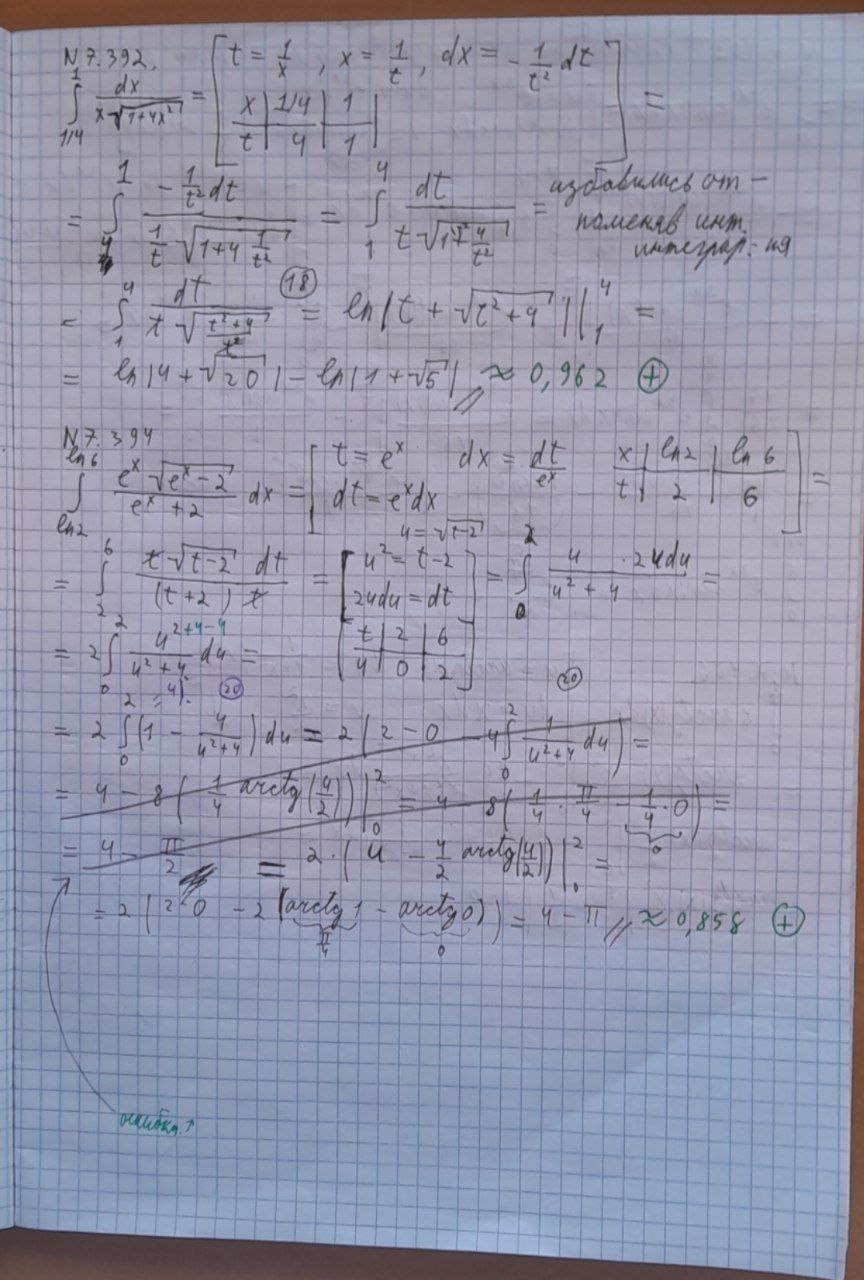 N 7.392.
∫_{1/4}^{1} dx/(x√(1+4x²)) = [ t = 1/x , x = 1/t , dx = -1/t² dt
x | 1/4 | 1 |
t | 4 | 1 | ] =
= ∫_{4}^{1} (-1/t² dt)/(1/t √(1+4 1/t²)) = ∫_{1}^{4} dt/(t√(1+4/t²)) = избавились от -
поменяв инт.
интеграр-ия
= ∫_{1}^{4} dt/(t√((t²+4)/t²)) (18) = ln|t + √(t²+4)| |_{1}^{4} =
= ln|4+√20| - ln|1+√5| // ≈ 0,962 ⊕
N 7.394
∫_{ln2}^{ln6} (e^x √(e^x-2))/(e^x+2) dx = [ t = e^x dx = dt/e^x x | ln2 | ln 6
dt = e^x dx t | 2 | 6 ] =
u = √(t-2)
= ∫_{2}^{6} (t√(t-2) dt)/((t+2) t) = [ u² = t-2
2udu = dt
t | 2 | 6
u | 0 | 2 ] = ∫_{0}^{2} (u · 2udu)/(u²+4) =
= 2∫_{0}^{2} (u²+4-4)/(u²+4) du =
(20) (20)
= 2 ∫_{0}^{2} (1 - 4/(u²+4)) du = 2 (2-0 - 4∫_{0}^{2} 1/(u²+4) du) =
= 4 - 8 (1/4 arctg(u/2)) |_{0}^{2} = 4 - 8(1/4 · π/4 - 1/4 · 0) =
0
= 4 - π/2 = 2·(u - 4/2 arctg(u/2)) |_{0}^{2} =
= 2 (2-0 - 2 (arctg 1 - arctg 0)) = 4 - π // ≈ 0,858 ⊕
π/4 0
ошибка ↑